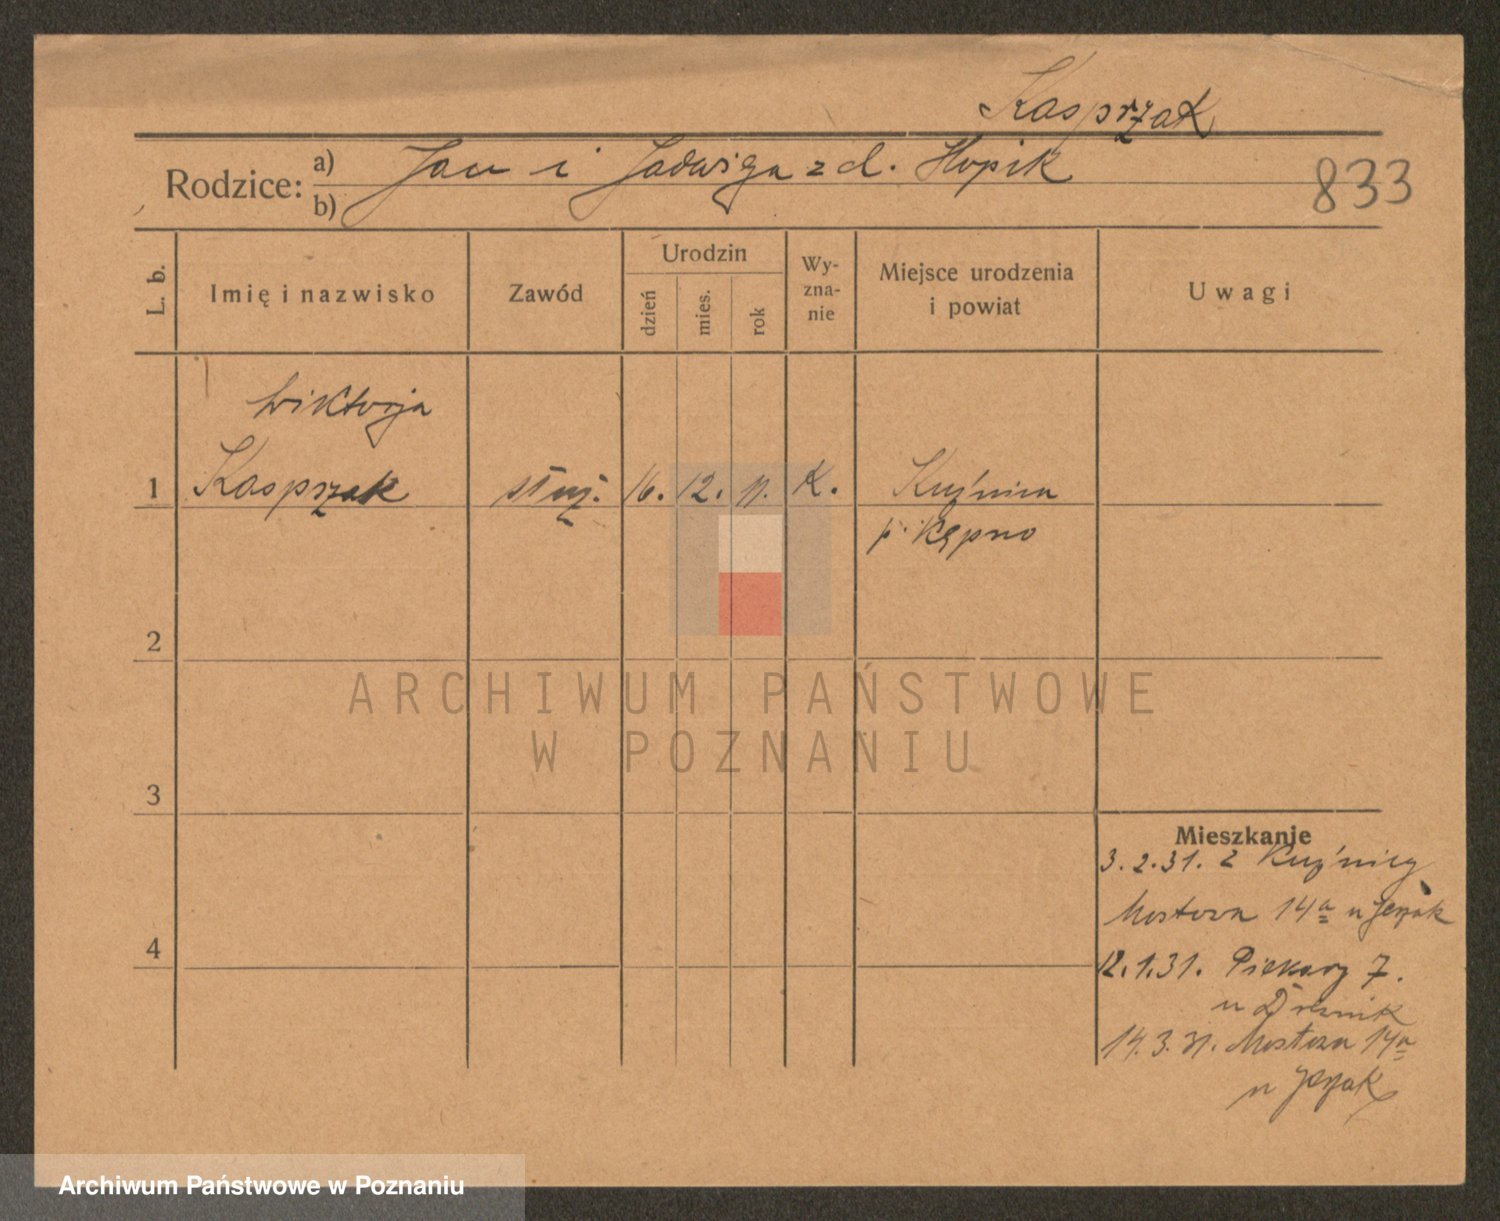 Kasprzak
Rodzice: a) Jan i Jadwiga z d. Hopik
b)
833
L. b. Imię i nazwisko Zawód Urodzin dzień mies. rok Wy-zna-nie Miejsce urodzenia i powiat Uwagi
Wiktorja
1 Kasprzak służ. 16. 12. 11. K. Kuźnica
p. Kępno
2
ARCHIWUM PAŃSTWOWE
W POZNANIU
3
Mieszkanie
3.2.31. z Kuźnicy
Mostowa 14a u
4
12.1.31. Piekary 7.
u
14.3.31. Mostowa 14a
u
Archiwum Państwowe w Poznaniu